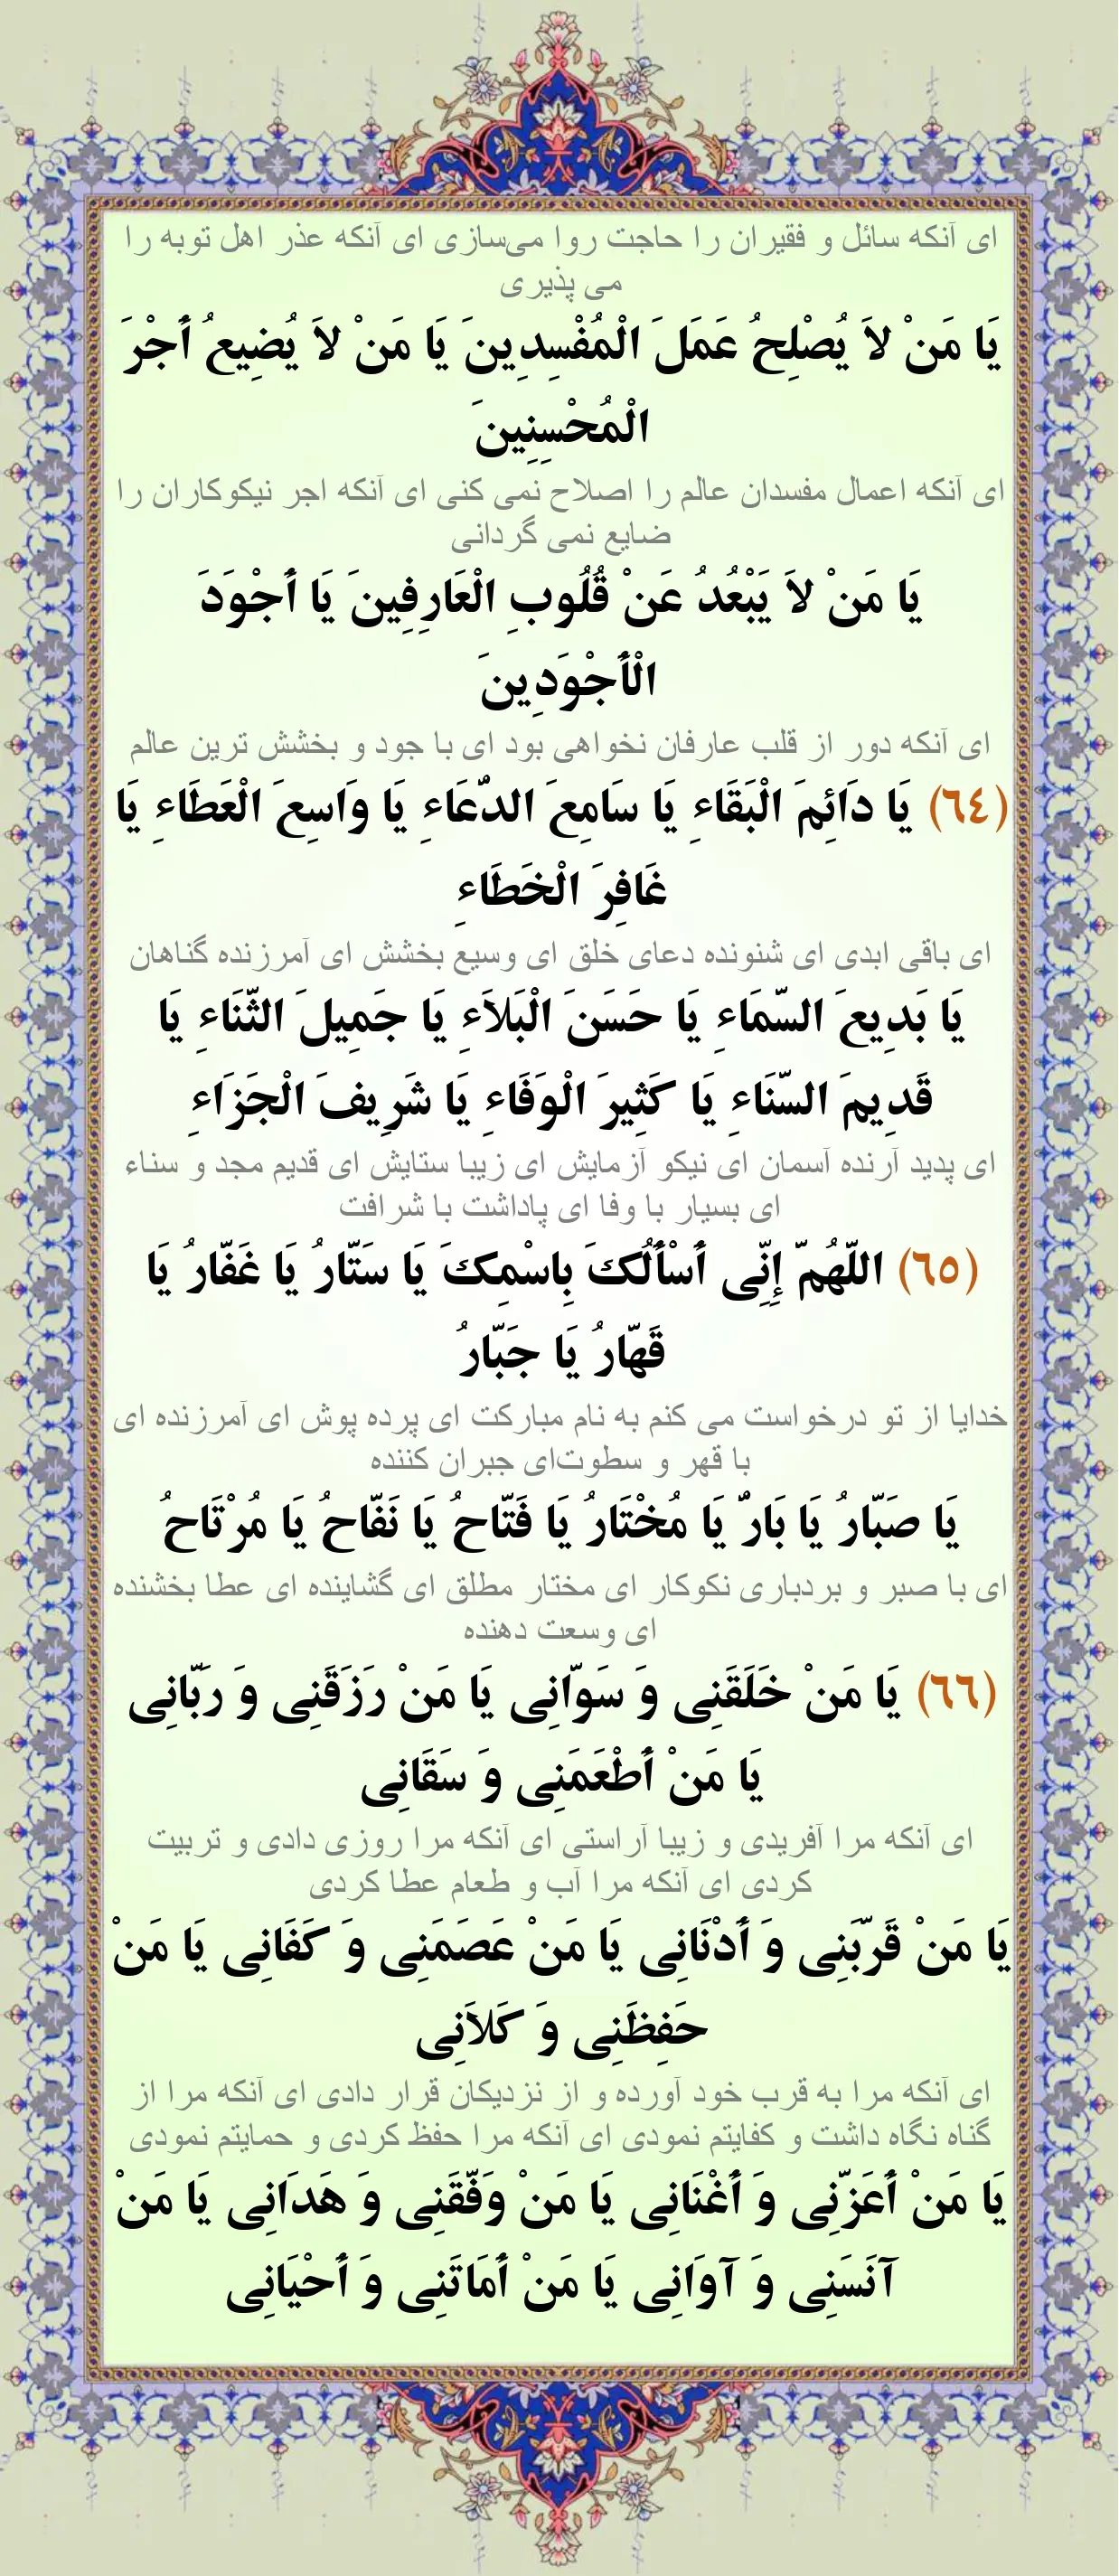 ای آنکه سائل و فقیران را حاجت روا می‌سازی ای آنکه عذر اهل توبه را
می پذیری
یَا مَنْ لاَ یُصْلِحُ عَمَلَ الْمُفْسِدِینَ یَا مَنْ لاَ یُضِیعُ أَجْرَ
الْمُحْسِنِینَ
ای آنکه اعمال مفسدان عالم را اصلاح نمی کنی ای آنکه اجر نیکوکاران را
ضایع نمی گردانی
یَا مَنْ لاَ یَبْعُدُ عَنْ قُلُوبِ الْعَارِفِینَ یَا أَجْوَدَ
الْأَجْوَدِینَ
ای آنکه دور از قلب عارفان نخواهی بود ای با جود و بخشش ترین عالم
(٦٤) یَا دَائِمَ الْبَقَاءِ یَا سَامِعَ الدُّعَاءِ یَا وَاسِعَ الْعَطَاءِ یَا
غَافِرَ الْخَطَاءِ
ای باقی ابدی ای شنونده دعای خلق ای وسیع بخشش ای آمرزنده گناهان
یَا بَدِیعَ السَّمَاءِ یَا حَسَنَ الْبَلاَءِ یَا جَمِیلَ الثَّنَاءِ یَا
قَدِیمَ السَّنَاءِ یَا کَثِیرَ الْوَفَاءِ یَا شَرِیفَ الْجَزَاءِ
ای پدید آرنده آسمان ای نیکو آزمایش ای زیبا ستایش ای قدیم مجد و سناء
ای بسیار با وفا ای پاداشت با شرافت
(٦٥) اللَّهُمَّ إِنِّی أَسْأَلُکَ بِاسْمِکَ یَا سَتَّارُ یَا غَفَّارُ یَا
قَهَّارُ یَا جَبَّارُ
خدایا از تو درخواست می کنم به نام مبارکت ای پرده پوش ای آمرزنده ای
با قهر و سطوت‌ای جبران کننده
یَا صَبَّارُ یَا بَارُّ یَا مُخْتَارُ یَا فَتَّاحُ یَا نَفَّاحُ یَا مُرْتَاحُ
ای با صبر و بردباری نکوکار ای مختار مطلق ای گشاینده ای عطا بخشنده
ای وسعت دهنده
(٦٦) یَا مَنْ خَلَقَنِی وَ سَوَّانِی یَا مَنْ رَزَقَنِی وَ رَبَّانِی
یَا مَنْ أَطْعَمَنِی وَ سَقَانِی
ای آنکه مرا آفریدی و زیبا آراستی ای آنکه مرا روزی دادی و تربیت
کردی ای آنکه مرا آب و طعام عطا کردی
یَا مَنْ قَرَّبَنِی وَ أَدْنَانِی یَا مَنْ عَصَمَنِی وَ کَفَانِی یَا مَنْ
حَفِظَنِی وَ کَلاَنِی
ای آنکه مرا به قرب خود آورده و از نزدیکان قرار دادی ای آنکه مرا از
گناه نگاه داشت و کفایتم نمودی ای آنکه مرا حفظ کردی و حمایتم نمودی
یَا مَنْ أَعَزَّنِی وَ أَغْنَانِی یَا مَنْ وَفَّقَنِی وَ هَدَانِی یَا مَنْ
آنَسَنِی وَ آوَانِی یَا مَنْ أَمَاتَنِی وَ أَحْیَانِی